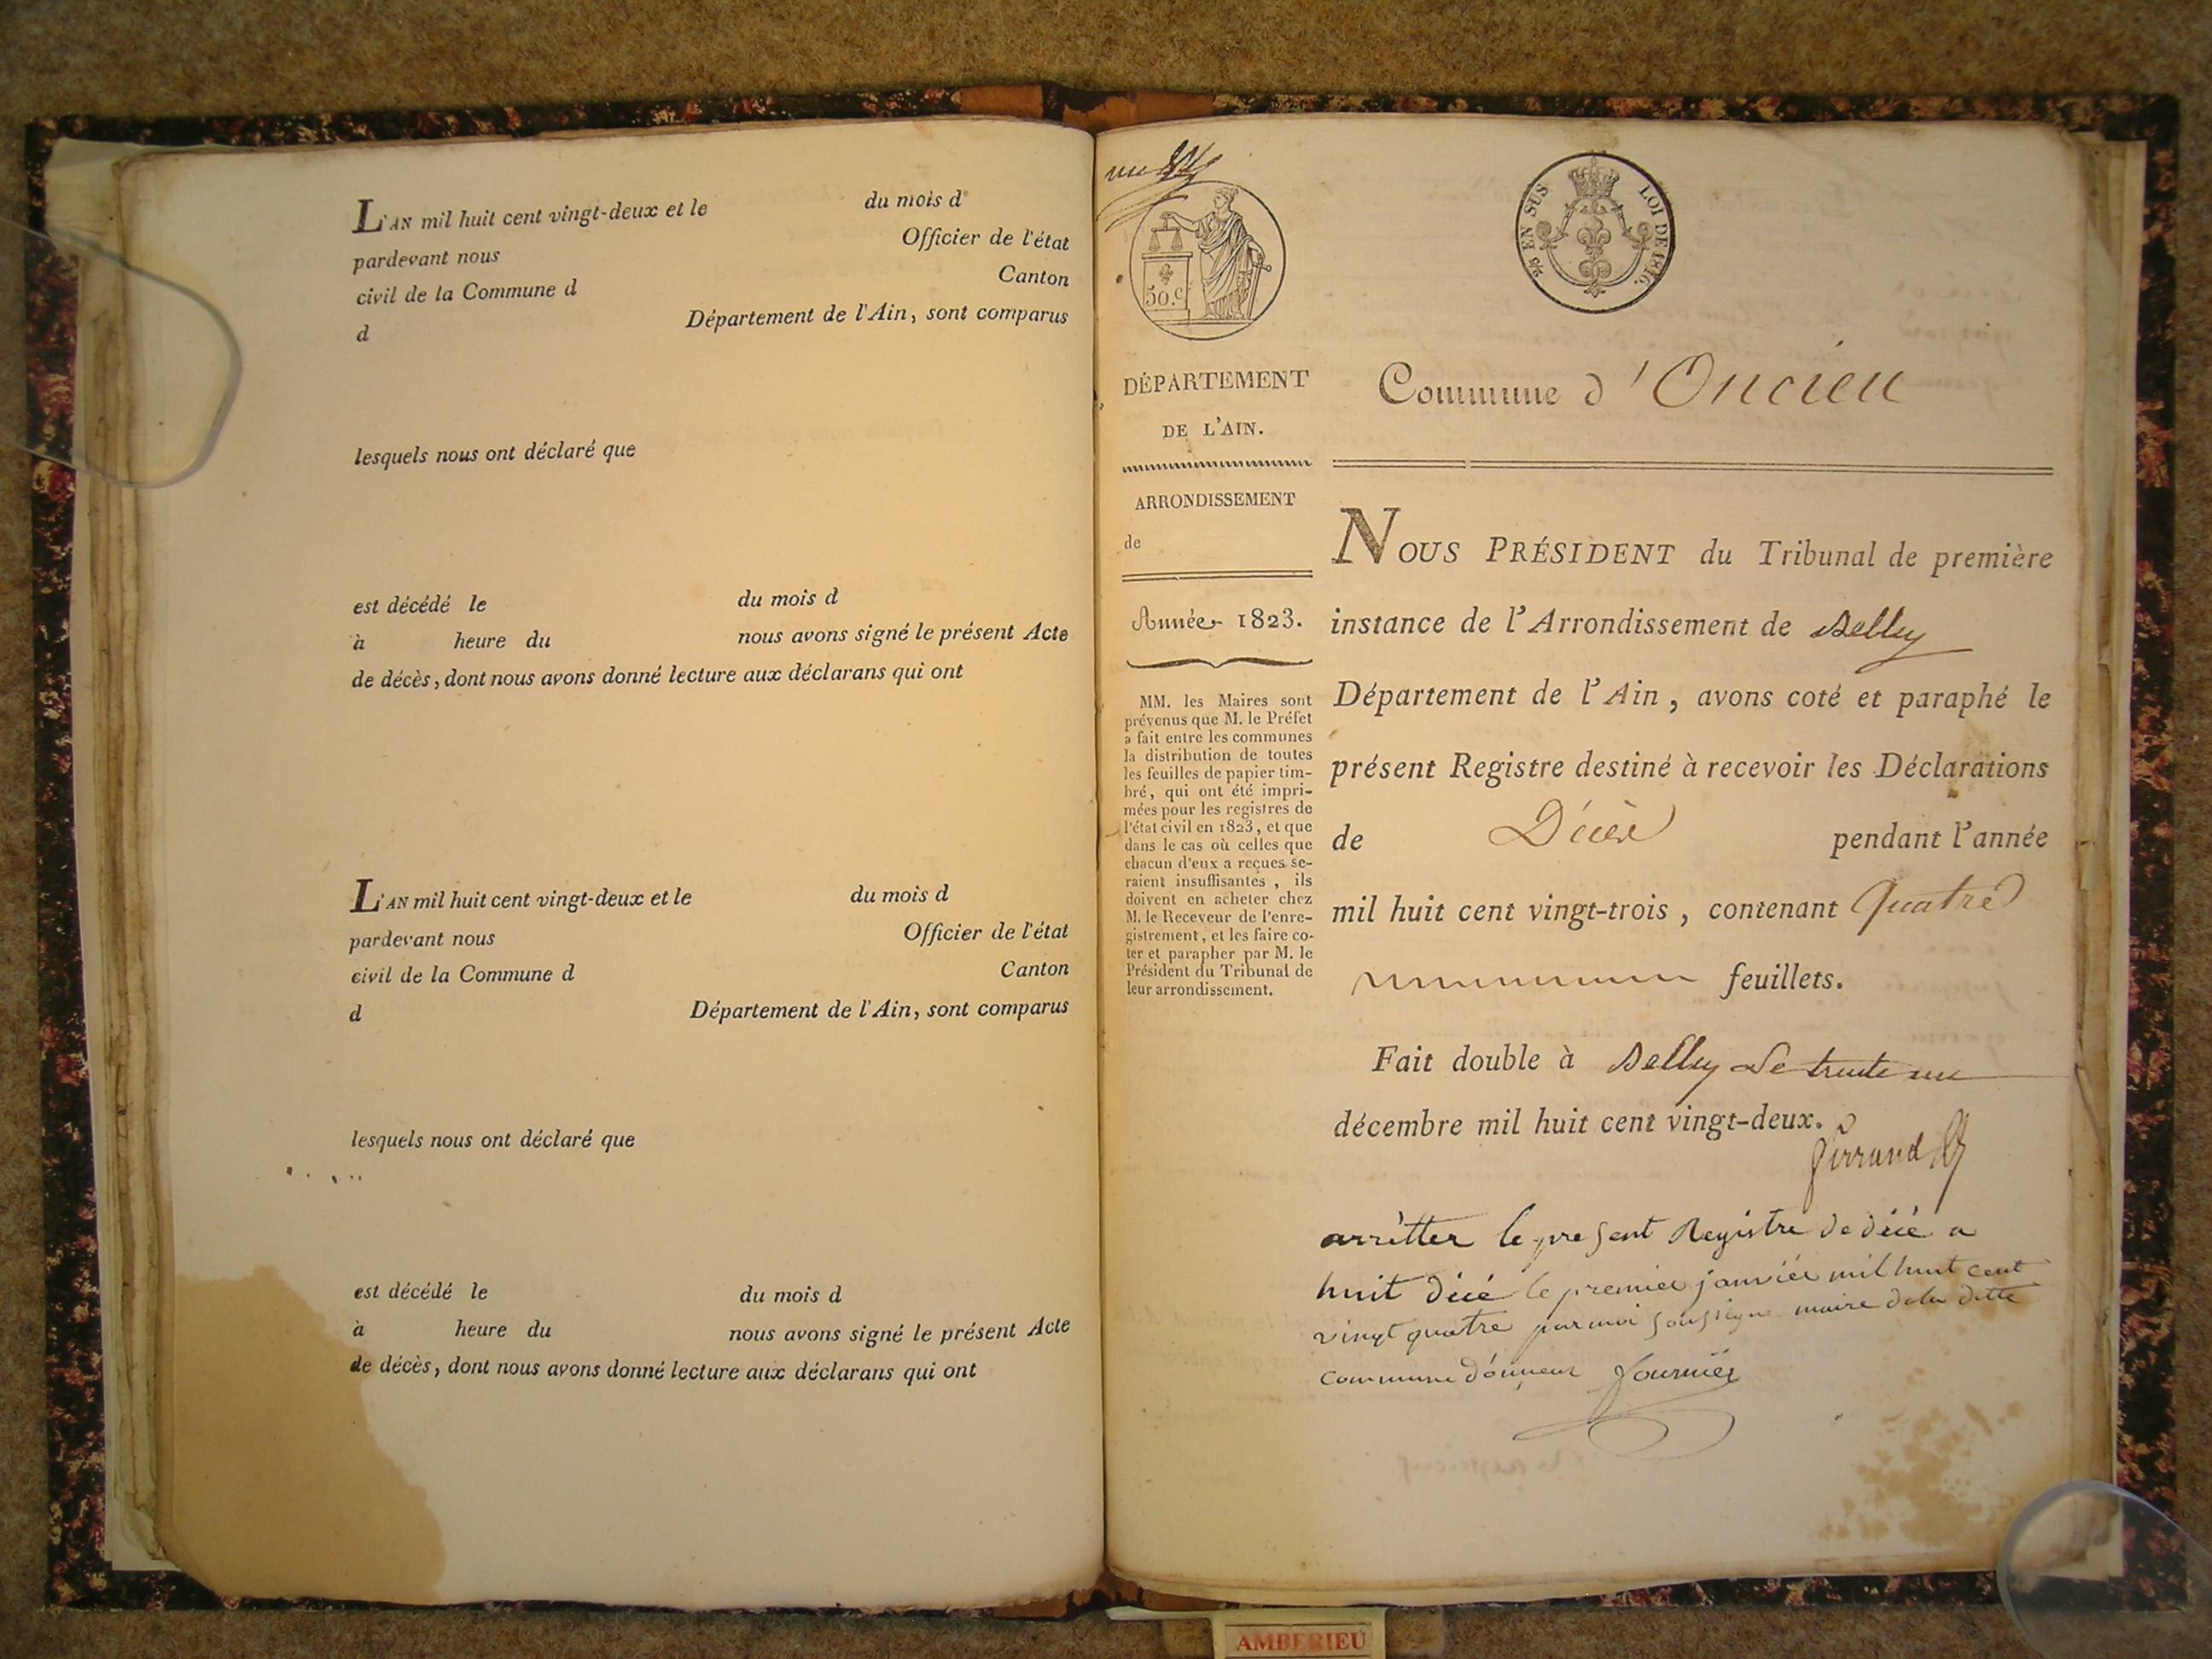 L'AN mil huit cent vingt-deux et le du mois d
pardevant nous Officier de l'état
civil de la Commune d Canton
d Département de l'Ain, sont comparus
lesquels nous ont déclaré que
est décédé le du mois d
à heure du nous avons signé le présent Acte
de décès, dont nous avons donné lecture aux déclarans qui ont
L'AN mil huit cent vingt-deux et le du mois d
pardevant nous Officier de l'état
civil de la Commune d Canton
d Département de l'Ain, sont comparus
lesquels nous ont déclaré que
est décédé le du mois d
à heure du nous avons signé le présent Acte
de décès, dont nous avons donné lecture aux déclarans qui ont
un
50.c
2/5 EN SUS LOI DE 1816.
DÉPARTEMENT
DE L'AIN.
ARRONDISSEMENT
de
Année 1823.
MM. les Maires sont
prévenus que M. le Préfet
a fait entre les communes
la distribution de toutes
les feuilles de papier tim-
bré, qui ont été impri-
mées pour les registres de
l'état civil en 1823, et que
dans le cas où celles que
chacun d'eux a reçues se-
raient insuffisantes, ils
doivent en acheter chez
M. le Receveur de l'enre-
gistrement, et les faire co-
ter et parapher par M. le
Président du Tribunal de
leur arrondissement.
Commune d'Oncieu
NOUS PRÉSIDENT du Tribunal de première
instance de l'Arrondissement de Belley
Département de l'Ain, avons coté et paraphé le
présent Registre destiné à recevoir les Déclarations
de Décès pendant l'année
mil huit cent vingt-trois, contenant Quatre
feuillets.
Fait double à Belley Le trente un
décembre mil huit cent vingt-deux.
arrêtter le present Registre de décé a
huit décé le premier janvier mil huit cent
vingt quatre par moi soussigne maire de la ditte
commune d'onçieux Fournier
AMBERIEU